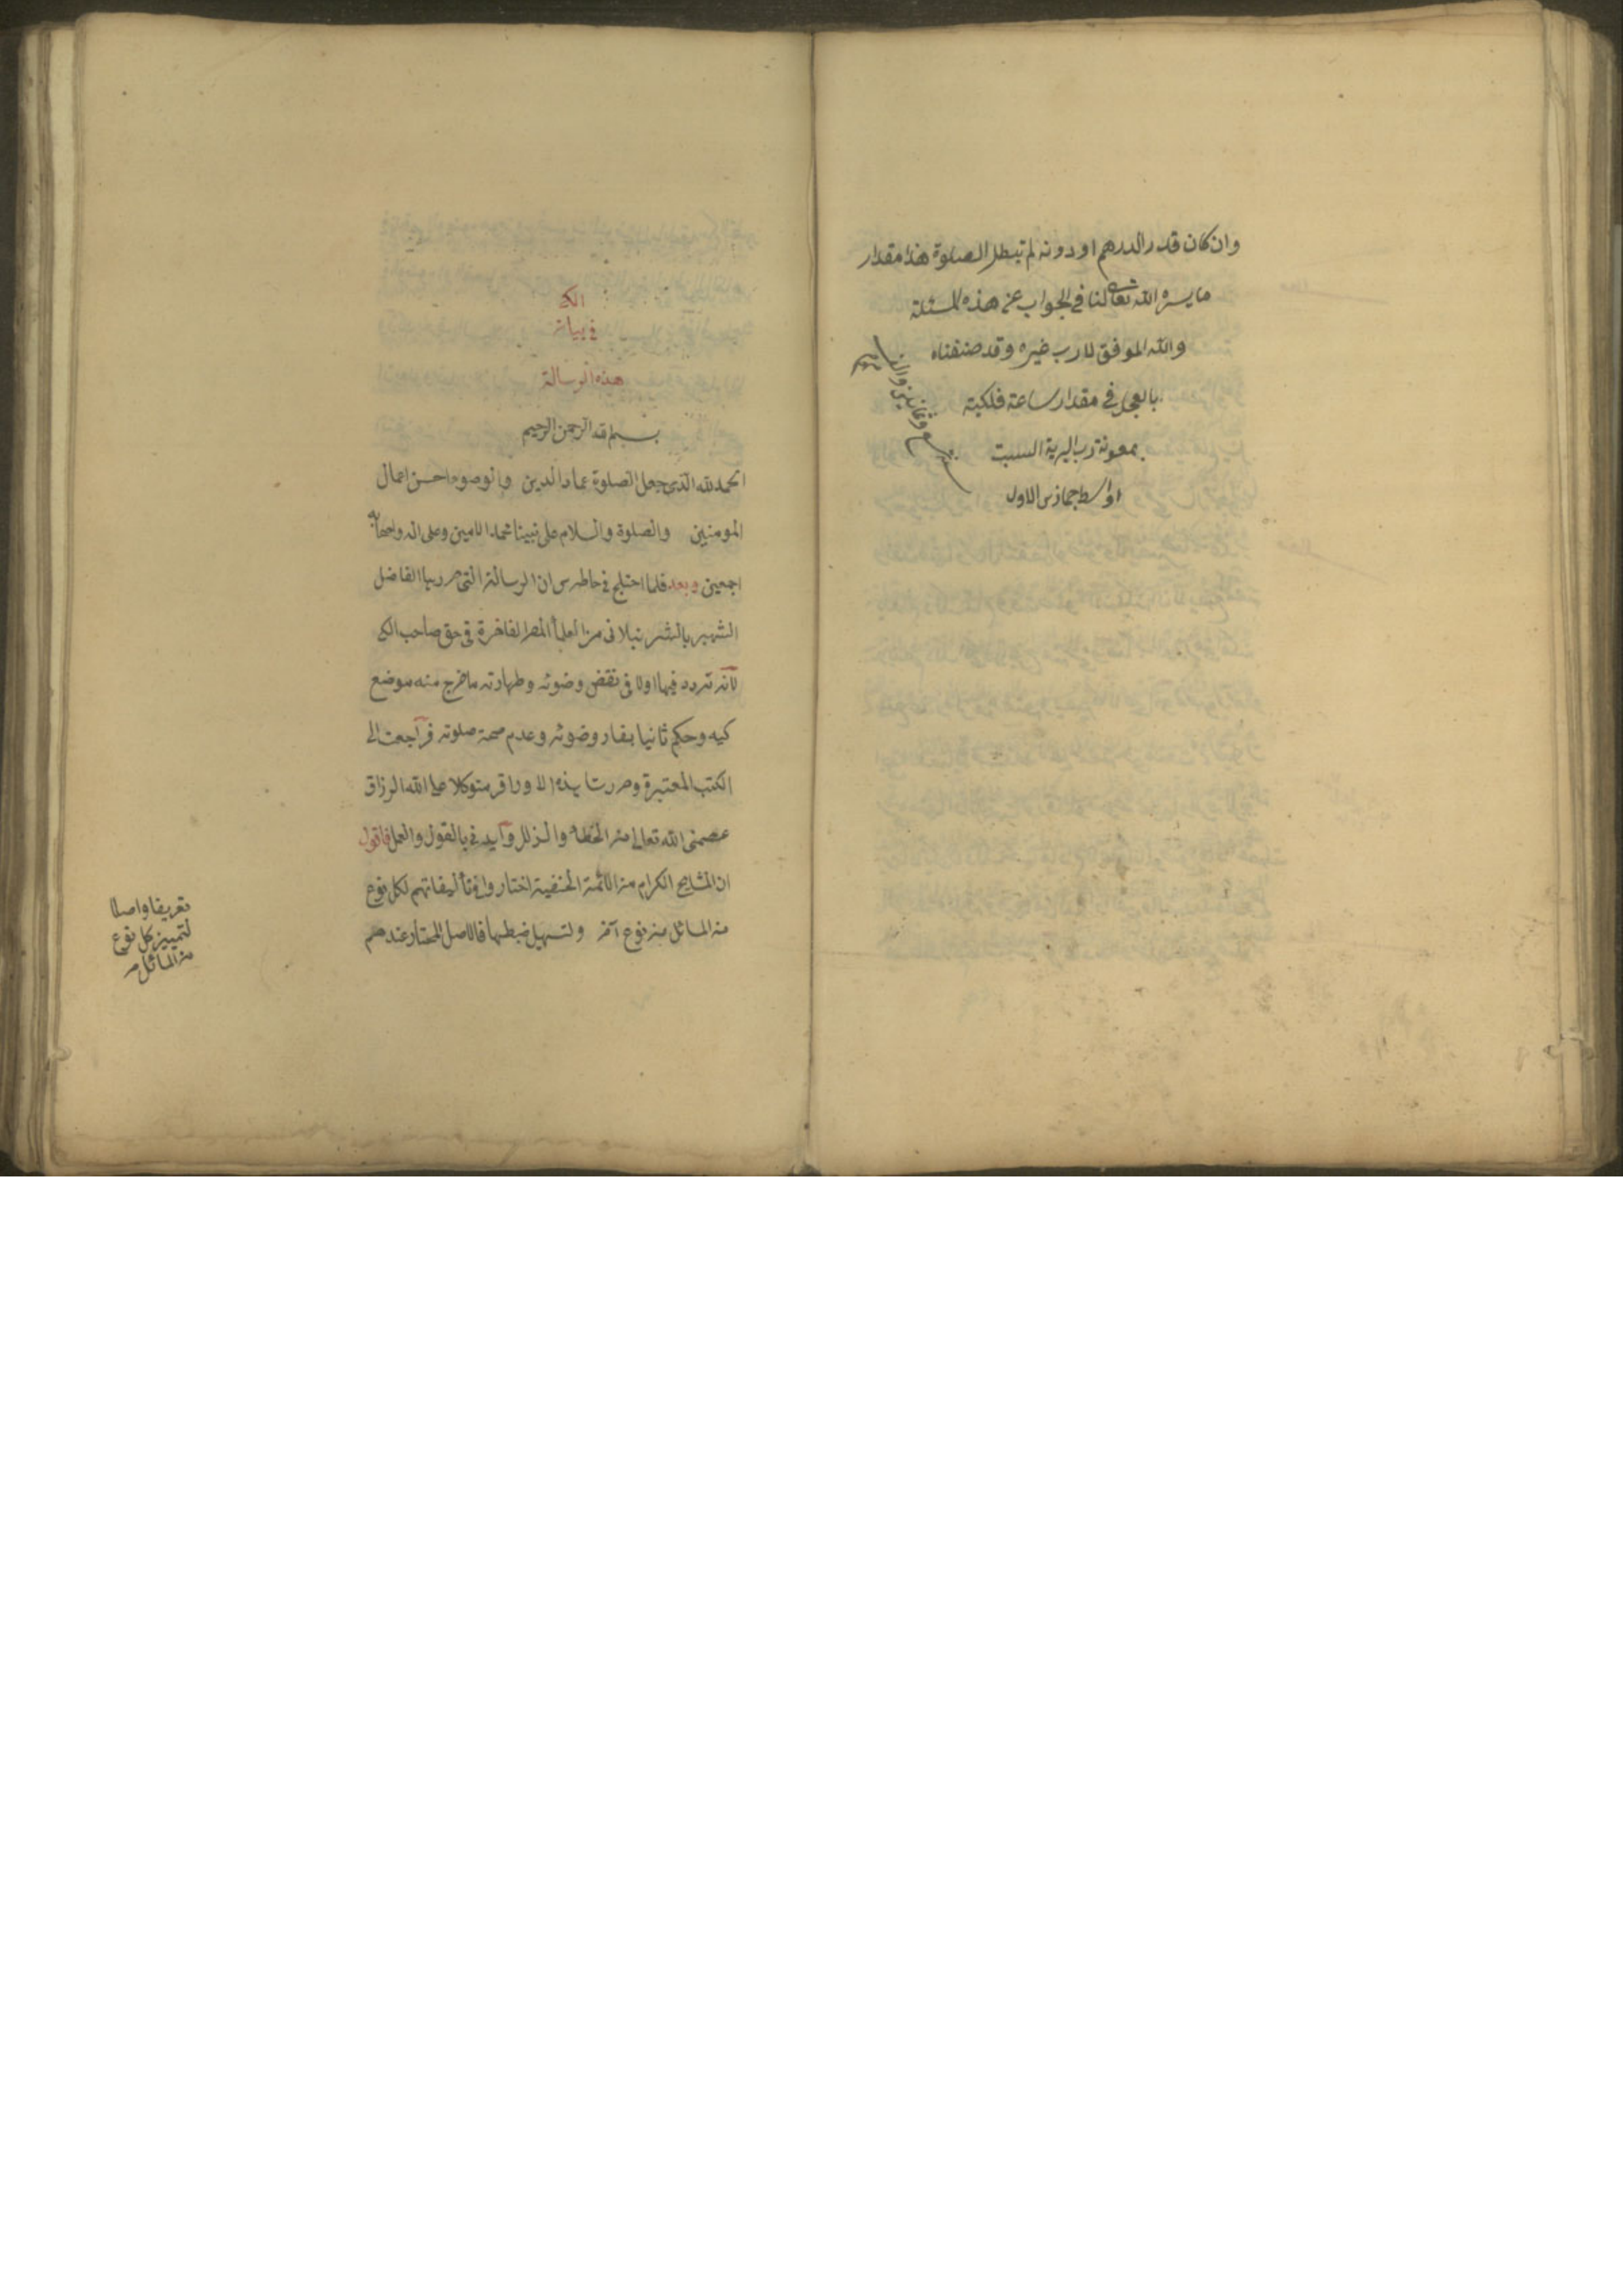 وان كان قدر الدرهم او دونه لم تبطل الصلوة هذا مقدار
ما يسره الله تعالى لنا في الجواب عن هذه المسئلة
والله الموفق لا رب غيره وقد صنفناه
بالعجل في مقدار ساعة فلكية
بمعونة رب البرية السبت
اواسط جماذى الاول
وثمانين والف
الكى
في بيان
هذه الرسالة
بسم الله الرحمن الرحيم
الحمد لله الذى جعل الصلوة عماد الدين والوضوء احسن اعمال
المومنين والصلوة والسلام على نبينا محمد الامين وعلى اله واصحابه
اجمعين وبعد فلما اختلج في خاطرى ان الرسالة التى حررها الفاضل
الشهير بالشرنبلانى من العلماء المصر الفاخرة في حق صاحب الكى
لانه تردد فيها اولا في نقض وضوئه وطهارته ما خرج منه موضع
كيه وحكم ثانيا بفساد وضوئه وعدم صحة صلوته فراجعت الى
الكتب المعتبرة وحررت هذه الاوراق متوكلا على الله الرزاق
عصمنى الله تعالى من الخطاء والزلل وايدنى بالقول والعمل فاقول
ان المشايخ الكرام من الائمة الحنفية اختاروا في تأليفاتهم لكل نوع
من المسائل من نوع آخر ولتسهيل ضبطها فالاصل المختار عندهم
تعريفا واصلا
لتمييز كل نوع
من المسائل